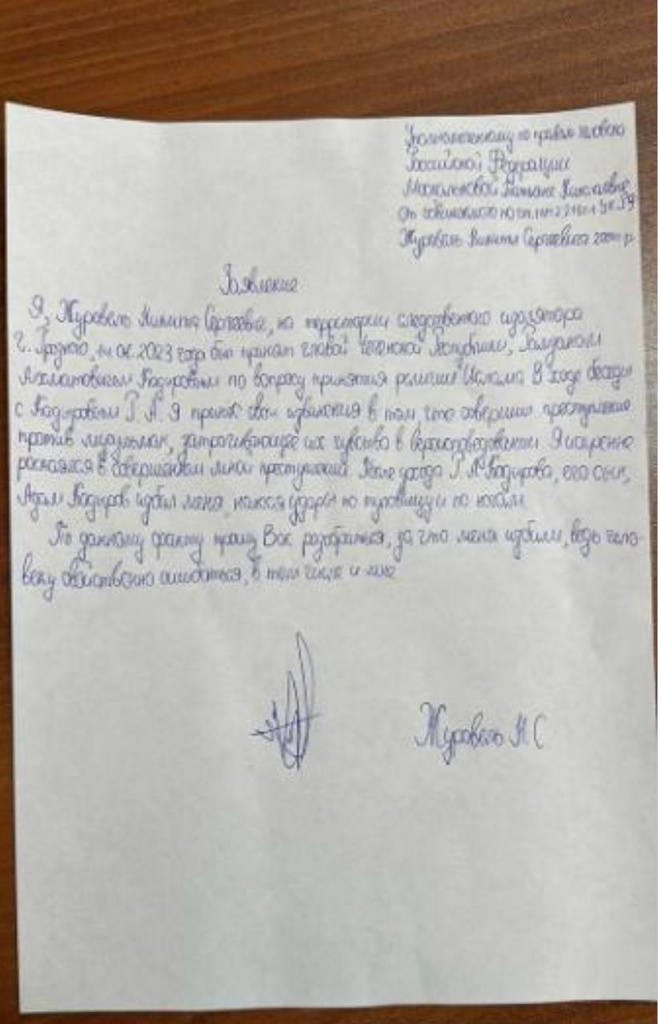 Уполномоченному по правам человека
Российской Федерации
Москальковой Татьяне Николаевне
от обвиняемого по ст.
Журавель Никиты Сергеевича 2004 г.р
Заявление
Я, Журавель Никита Сергеевич, на территории следственого изолятора
г. Грозного, 2023 года был принят главой Чеченской Республики, Рамзаном
Ахматовичем Кадыровым по вопросу принятия религии Ислама. В ходе беседы
с Кадыровым Р. А. Я принес свои извинения в том, что совершил преступление
против мусульман, затрагивающее их чувство в вероисповедовании. Я искренне
раскаялся в совершенном мной преступлении. После ухода Р. А. Кадырова, его сын,
Адам Кадыров избил меня, нанося удары по туловищу и по ногам.
По данному факту прошу Вас разобраться, за что меня избили, ведь чело-
веку свойственно ошибаться, в том числе и мне
Журавель Н С